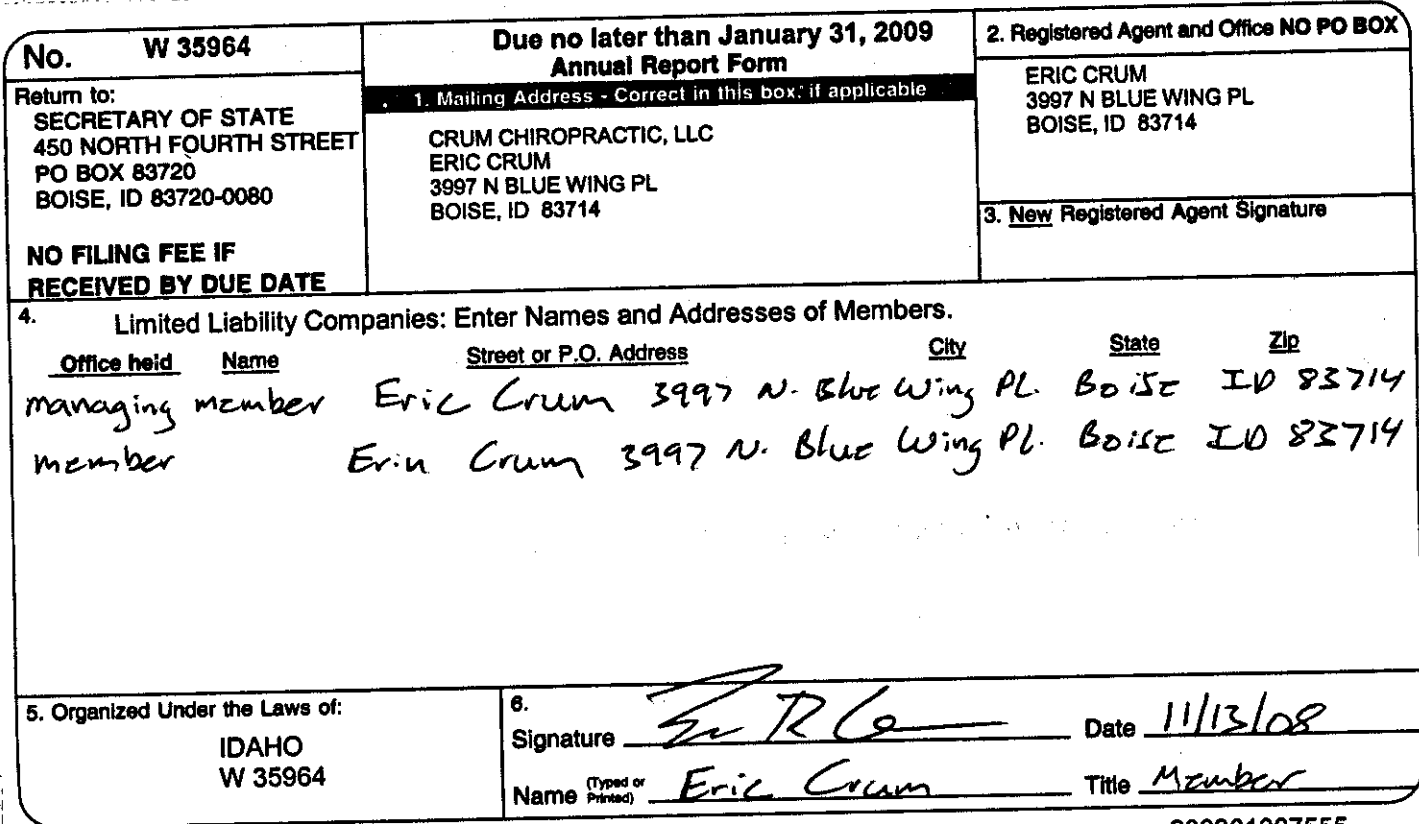 No. W 35964
Return to:
SECRETARY OF STATE
450 NORTH FOURTH STREET
PO BOX 83720
BOISE, ID 83720-0080
NO FILING FEE IF
RECEIVED BY DUE DATE
Due no later than January 31, 2009
Annual Report Form
1. Mailing Address - Correct in this box, if applicable
CRUM CHIROPRACTIC, LLC
ERIC CRUM
3997 N BLUE WING PL
BOISE, ID 83714
2. Registered Agent and Office NO PO BOX
ERIC CRUM
3997 N BLUE WING PL
BOISE, ID 83714
3. New Registered Agent Signature
4. Limited Liability Companies: Enter Names and Addresses of Members.
Office held Name Street or P.O. Address City State Zip
managing member Eric Crum 3997 N. Blue Wing PL. Boise ID 83714
member Erin Crum 3997 N. Blue Wing Pl. Boise ID 83714
5. Organized Under the Laws of:
IDAHO
W 35964
6.
Signature Date 11/13/08
Name (Typed or Printed) Eric Crum Title Member